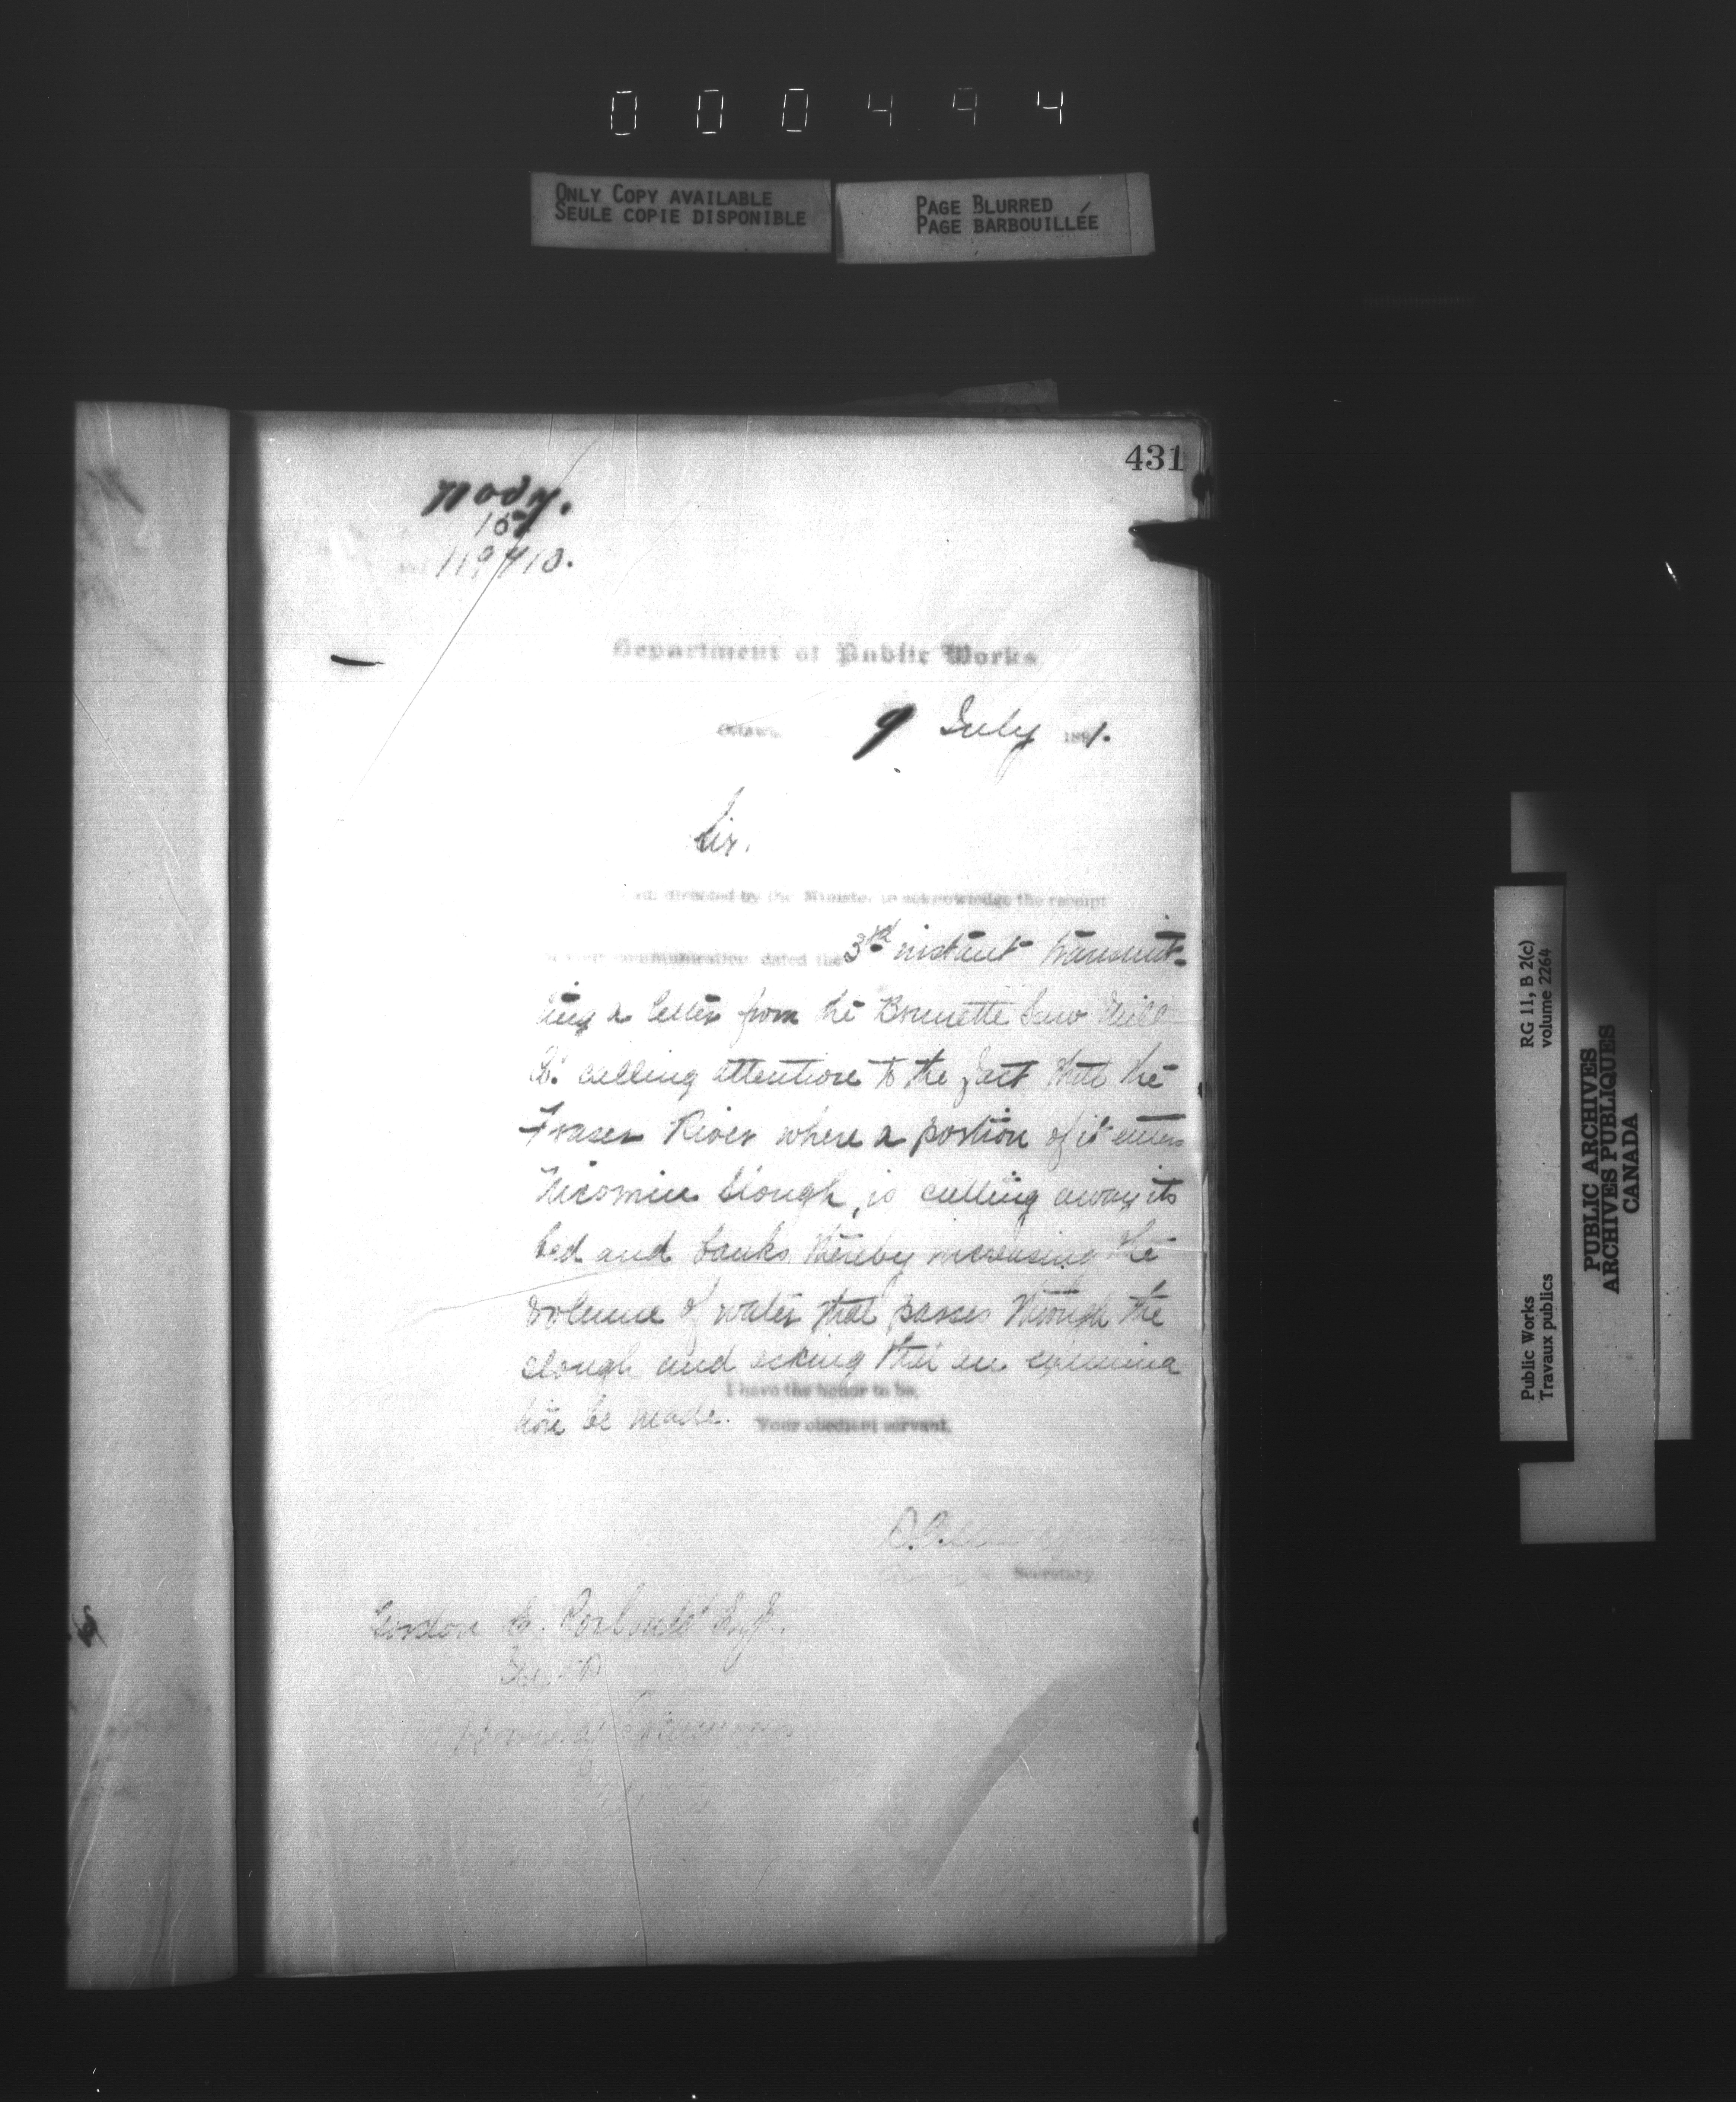 000494
ONLY COPY AVAILABLE
SEULE COPIE DISPONIBLE
PAGE BLURRED
PAGE BARBOUILLÉE
431
119410.
Department of Public Works
Ottawa 9 July 1891.
Sir.
am directed by the Minister to acknowledge the receipt
communication dated the 3rd instant transmit-
ting a letter from the Brunette Saw Mill
Co. calling attention to the fact that the
Fraser River where a portion of it enters
Nicomen Slough, is cutting away its
bed and banks thereby increasing the
volume of water that passes through the
slough and asking that an examina
tion be made.
I have the honor to be,
Your obedient servant,
Secretary
Gordon E. Corbould Esq.
RG 11, B 2(c)
volume 2264
Public Works
Travaux publics
PUBLIC ARCHIVES
ARCHIVES PUBLIQUES
CANADA